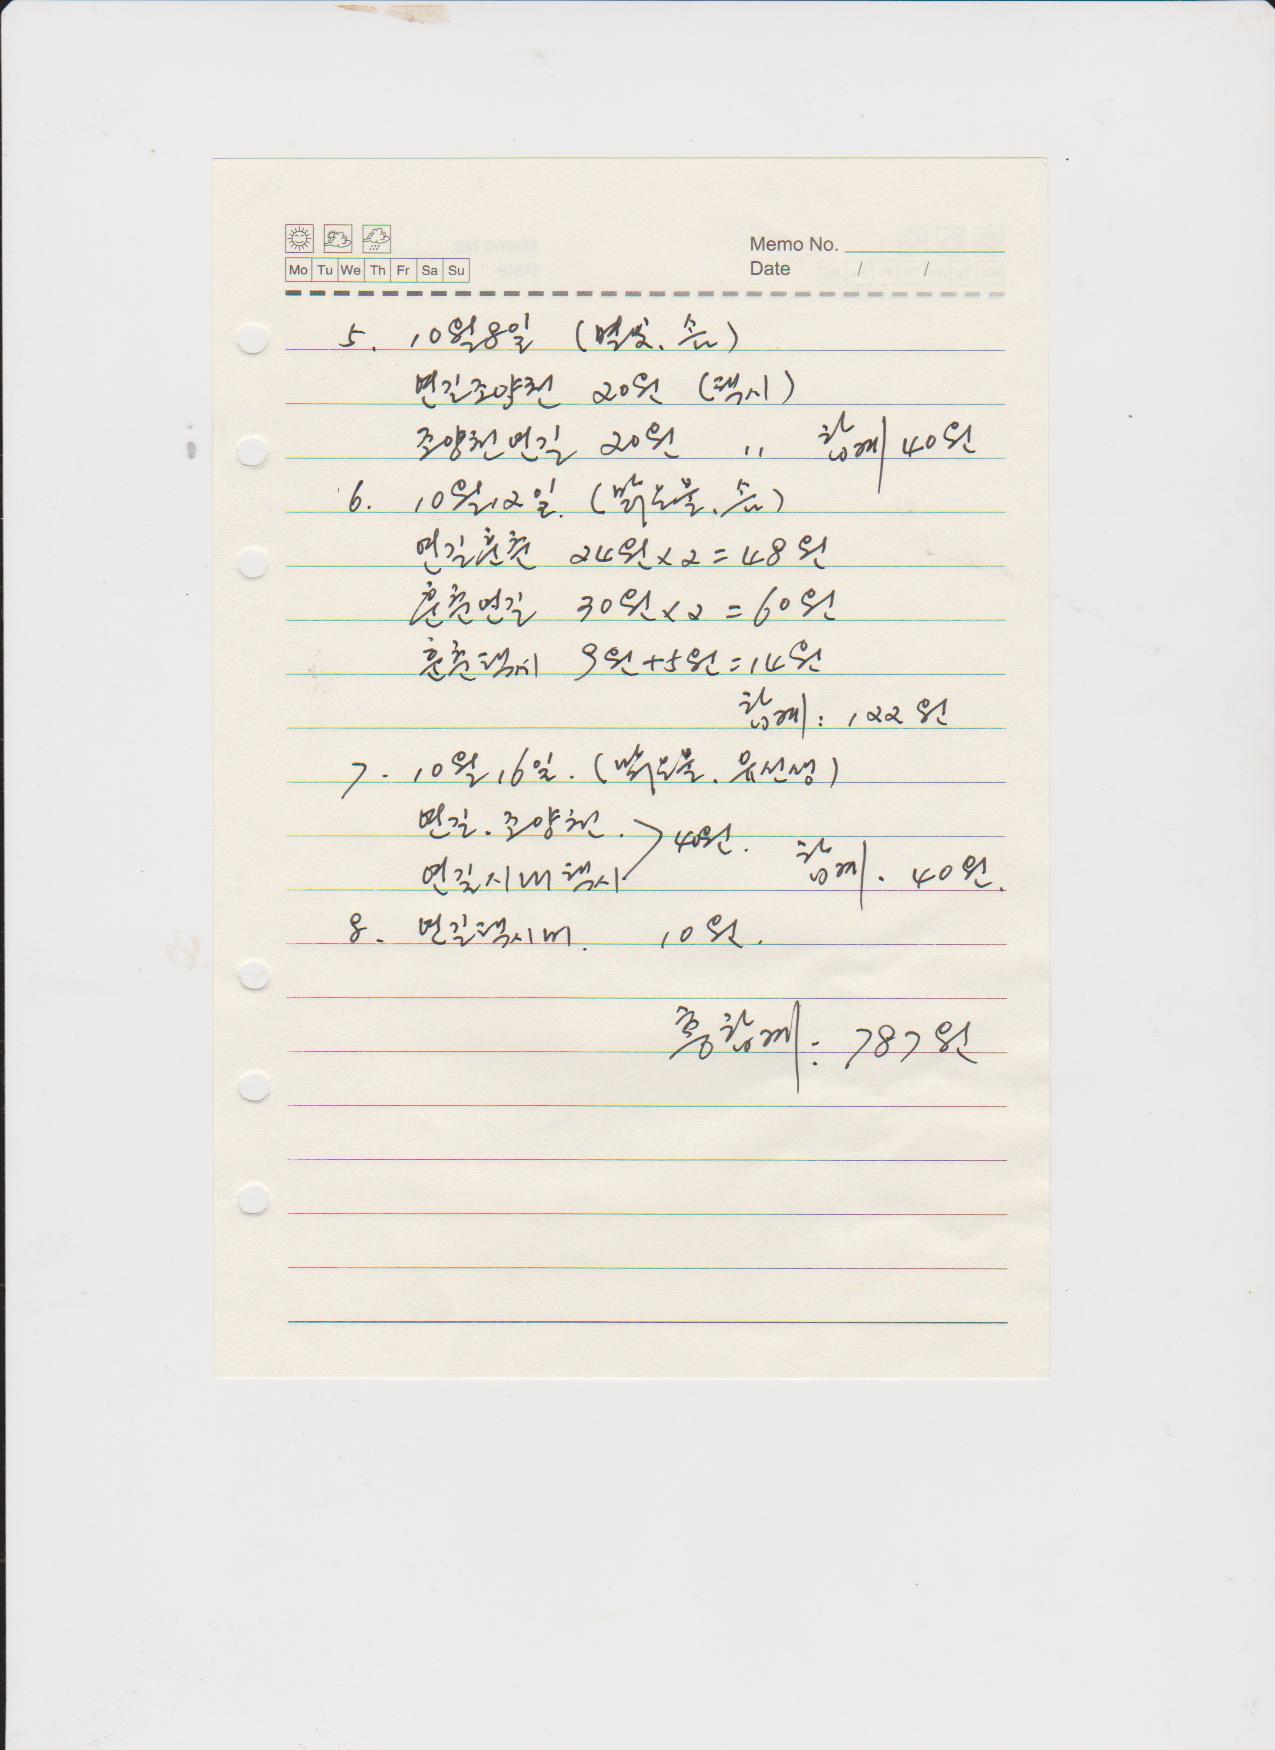 Memo No.
Mo Tu We Th Fr Sa Su
Date / /
5. 10월8일 (별빛, 솜)
연길조양천 20원 (택시)
조양천연길 20원 〃 합계 40원
6. 10월12일. (솜)
연길훈춘 24원×2=48원
훈춘연길 30원×2=60원
훈춘택시 9원+5원=14원
합계: 122원
7. 10월16일. (유선생)
연길. 조양천. > 40원.
연길시내택시 합계. 40원.
8. 연길택시비. 10원.
총합계: 787원